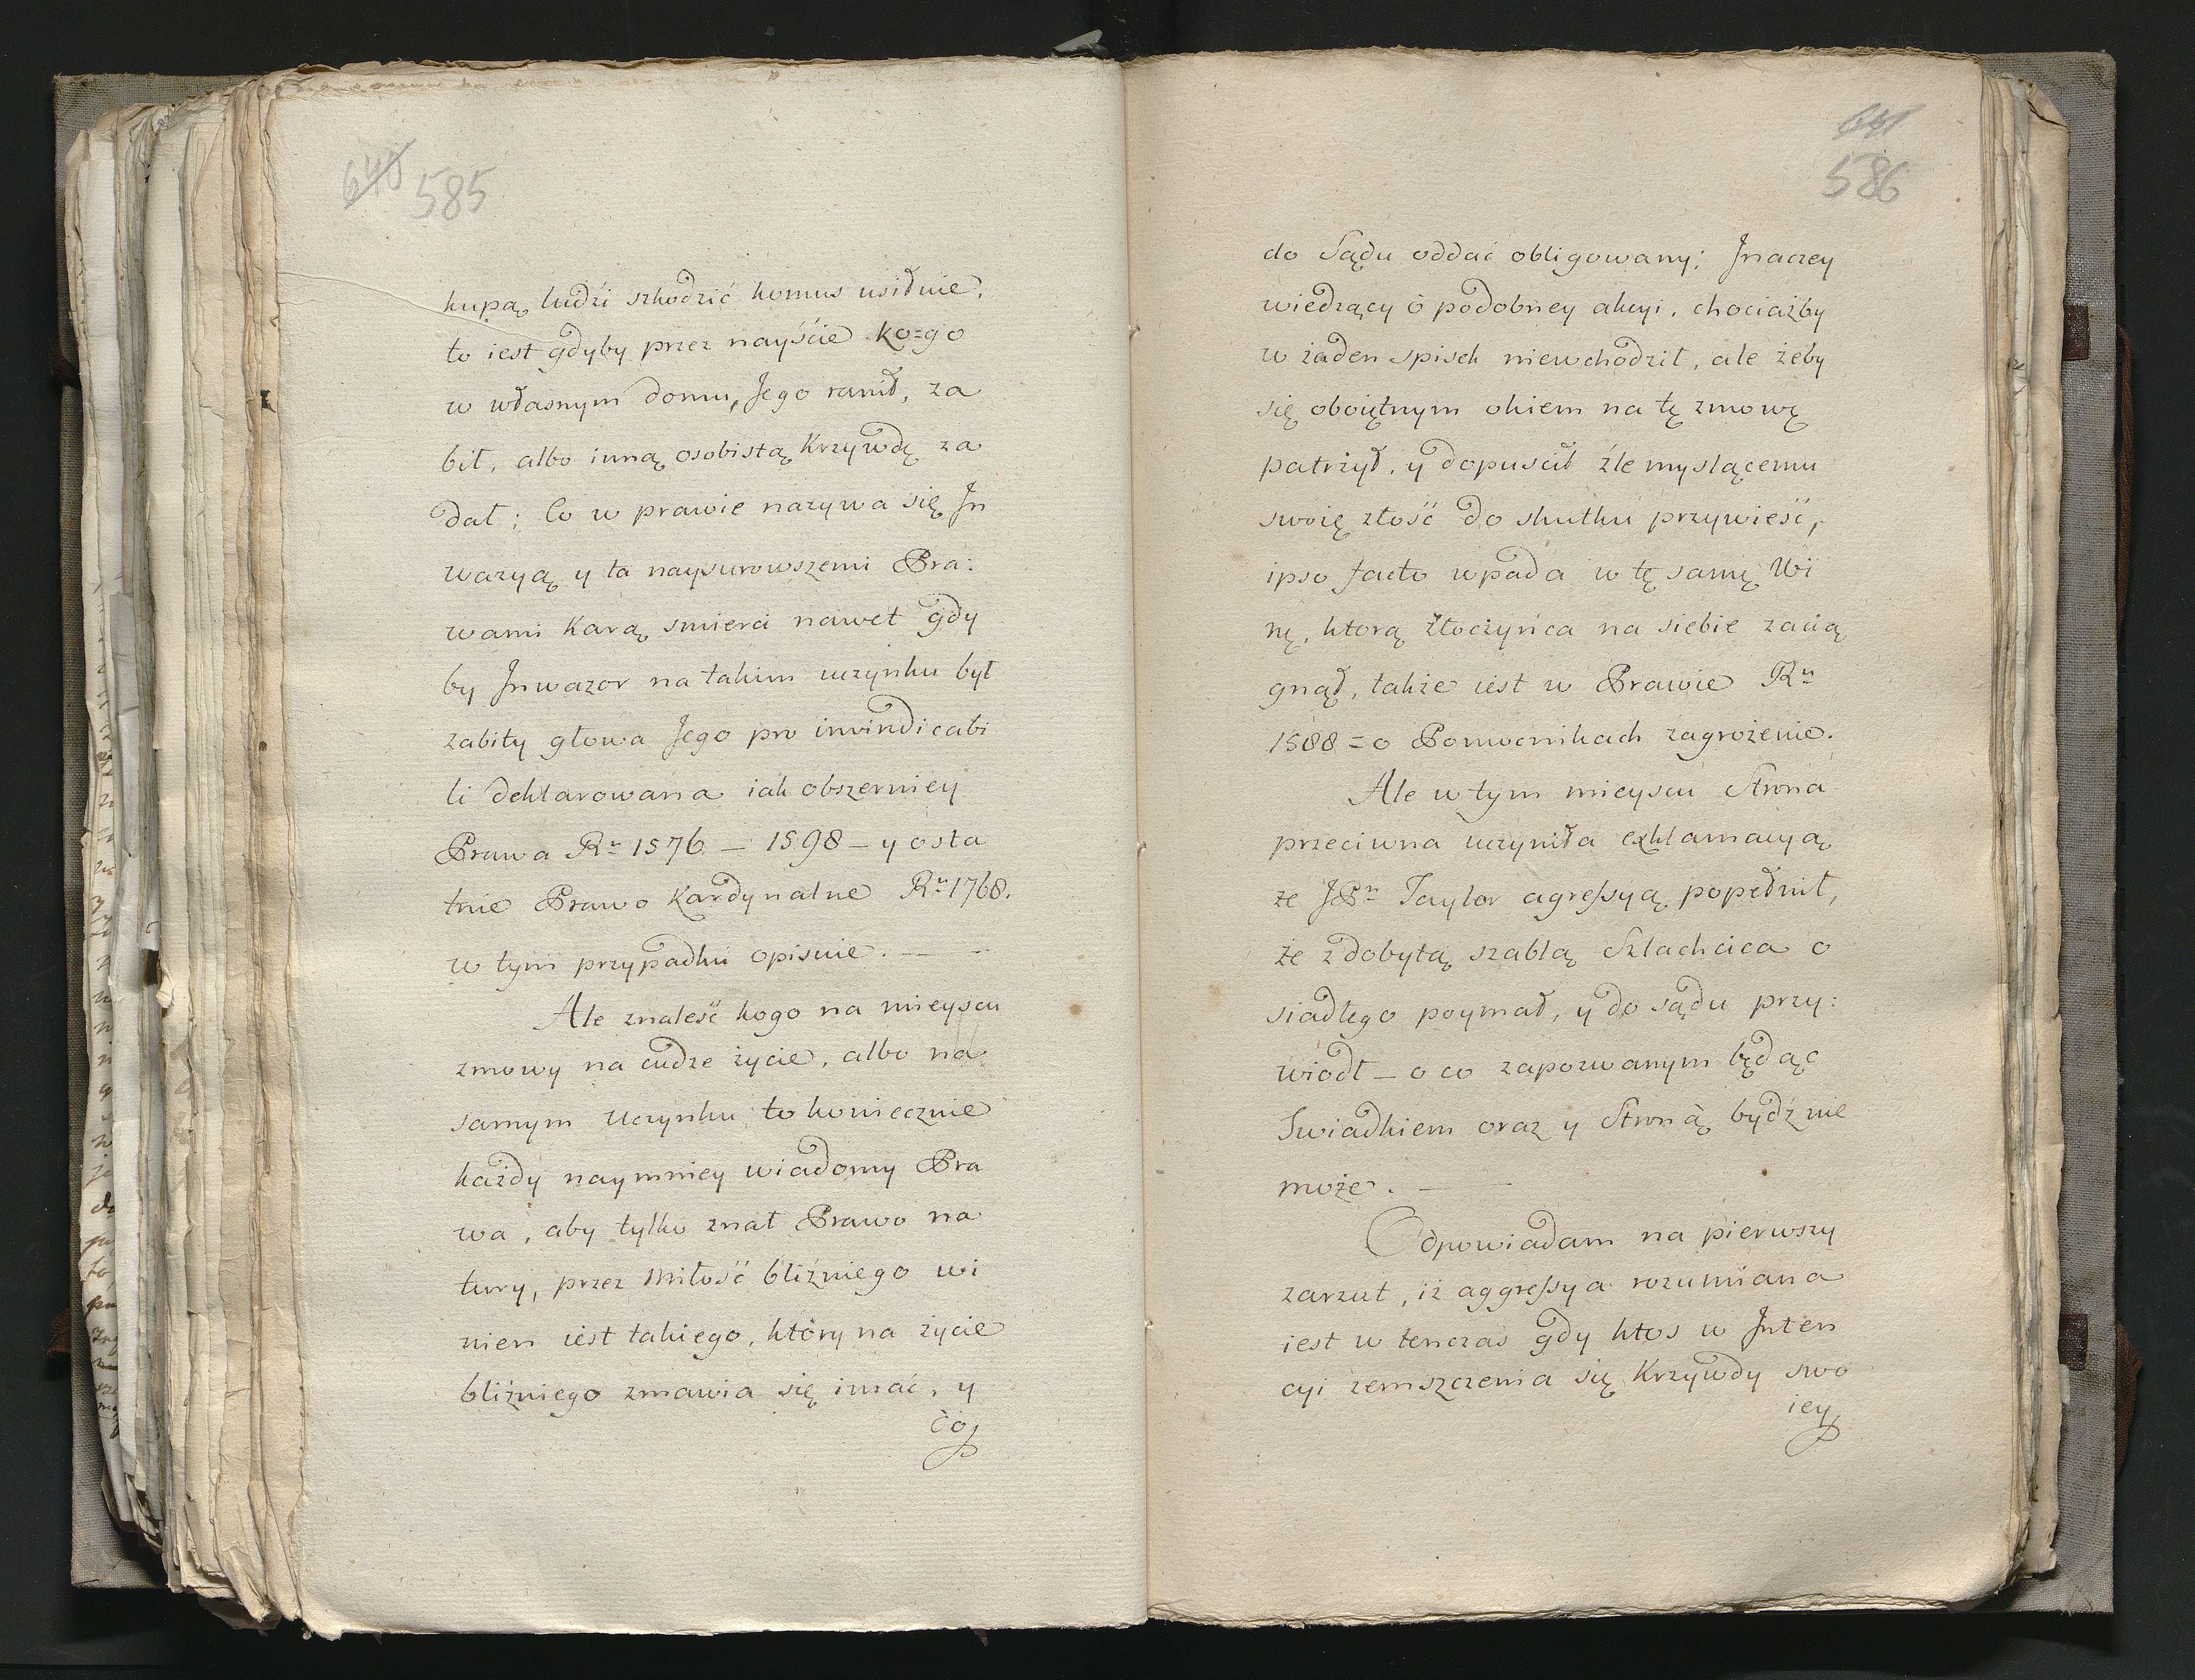 640 585
kupą ludźi szkodzić komus usiłuie,
to iest gdyby przez nayście ko=go
w własnym domu, Jego ranił, za
bił, albo inną osobistą Krzywdę za
dał; Co w prawie nazywa się In
wazyą y ta naysurowszemi Pra:
wami Karą smierci nawet gdy
by Inwazor na takim uczynku był
zabity głowa Jego pro invindicabi
li deklarowana iak obszerniey
Prawa Rᵘ 1576 — 1598 — y osta
tnie Prawo Kardynalne Rᵘ 1768.
w tym przypadku opisuie. — -
Ale znaleść kogo na mieyscu
zmowy na cudze życie, albo na
samym uczynku to koniecznie
każdy naymniey wiadomy Pra
wa, aby tylko znał Prawo na
tury, przez Miłość bliźniego wi
nien iest takiego, który na życie
bliźniego zmawia się imać, y
co
641
586
do Sądu oddać obligowany; Inaczey
wiedzący o podobney akcyi, chociażby
w żaden spisek niewchodził, ale żeby
się oboiętnym okiem na tę zmowę
patrzył, y dopuścił źle myslącemu
swoię złość do skutku przywieść,
ipso facto wpada w tę samę Wi
nę, ktorą złoczyńca na siebie zacią
gnął, takie iest w Prawie Rᵘ
1588 = o Pomocnikach zagrożenie.
Ale w tym mieyscu Strona
przeciwna uczyniła exklamacyą
że JPⁿ Taylor agressyą popełnił,
że z dobytą szablą Szlachcica o
siadłego poymał, y do sądu przy:
wiodł — o co zapozwanym będąc
Swiadkiem oraz y Stroną bydź nie
może. —
Odpowiadam na pierwszy
zarzut, iż aggressya rozumiana
iest w tenczas gdy ktos w Inten
cyi zemszczenia się Krzywdy swo
iey